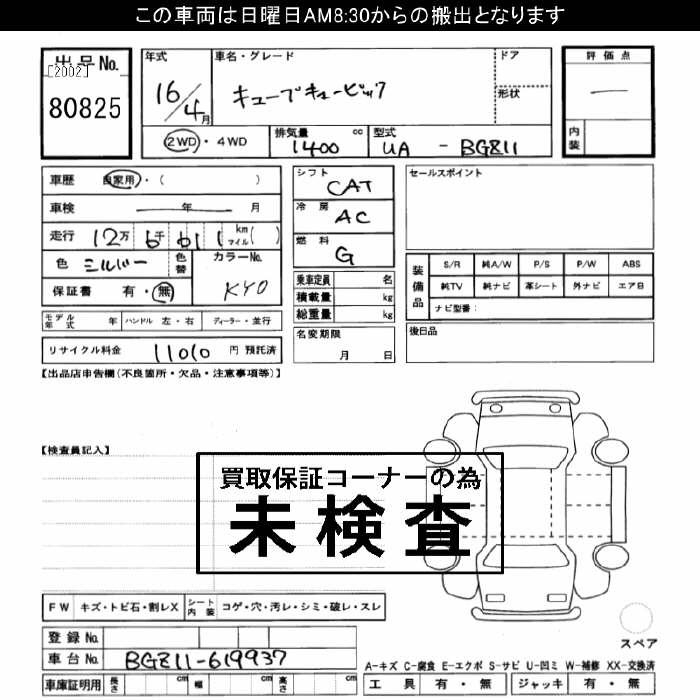 この車両は日曜日AM8:30からの搬出となります
出品No.
[2002]
80825
年式
16/4月
車名・グレード
キューブキュービック
ドア
形状
評価点
―
内装
2WD・4WD
排気量 cc
1400
型式
UA - BGZ11
車歴 自家用・( )
車検 年 月
走行 12万 6千 611 km マイル( )
色 シルバー 色替
カラーNo.
KY0
保証書 有・無
シフト
CAT
冷房
AC
燃料
G
乗車定員 名
積載量 kg
総重量 kg
名変期限
月 日
セールスポイント
装備品
S/R 純A/W P/S P/W ABS
純TV 純ナビ 革シート 外ナビ エアB
ナビ型番:
後日品
モデル年式 年 ハンドル 左・右 ディーラー・並行
リサイクル料金 11010 円 預託済
【出品店申告欄(不良箇所・欠品・注意事項等)】
【検査員記入】
買取保証コーナーの為
未検査
FW キズ・トビ石・割レX シート内装 コゲ・穴・汚レ・シミ・破レ・スレ
登録No.
車台No. BGZ11-619937
車庫証明用 長さ cm 幅 cm 高さ cm
スペア
A-キズ C-腐食 E-エクボ S-サビ U-凹ミ W-補修 XX-交換済
工具 有・無 ジャッキ 有・無